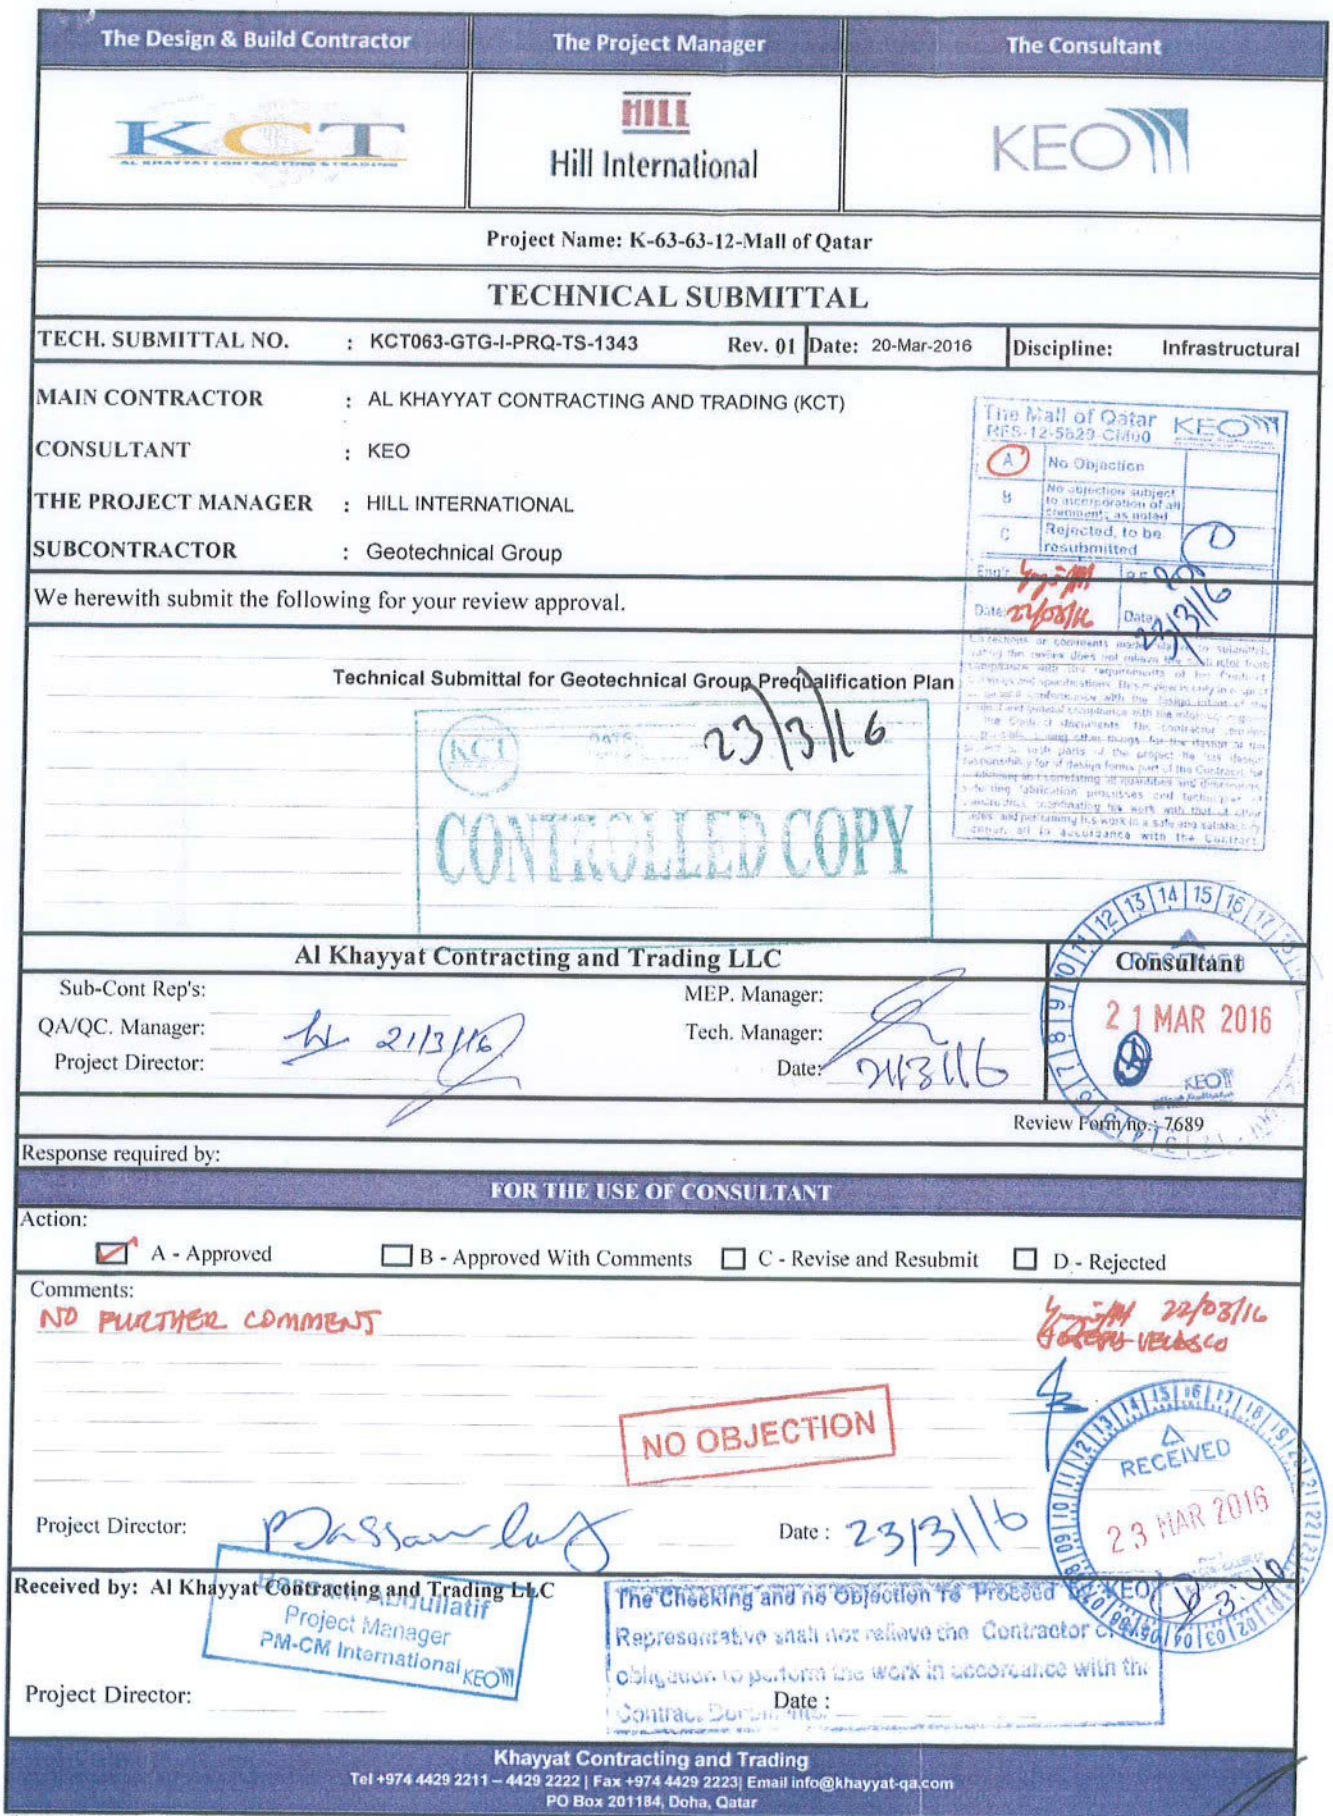 The Design & Build Contractor
The Project Manager
The Consultant
KCT
AL KHAYYAT CONTRACTING & TRADING
HILL
Hill International
KEO
Project Name: K-63-63-12-Mall of Qatar
TECHNICAL SUBMITTAL
TECH. SUBMITTAL NO. : KCT063-GTG-I-PRQ-TS-1343 Rev. 01 Date: 20-Mar-2016 Discipline: Infrastructural
MAIN CONTRACTOR : AL KHAYYAT CONTRACTING AND TRADING (KCT)
CONSULTANT : KEO
THE PROJECT MANAGER : HILL INTERNATIONAL
SUBCONTRACTOR : Geotechnical Group
The Mall of Qatar KEO
RES-12-5829-CM00
A No Objection
B No objection subject
to incorporation of all
comments as noted
C Rejected, to be
resubmitted
Eng'r
Date: 22/03/16 Date: 23/3/16
We herewith submit the following for your review approval.
Technical Submittal for Geotechnical Group Prequalification Plan
KCT DATE: 23/3/16
CONTROLLED COPY
Al Khayyat Contracting and Trading LLC
Consultant
Sub-Cont Rep's:
MEP. Manager:
QA/QC. Manager: 21/3/16
Tech. Manager:
Project Director:
Date: 21/3/16
RECEIVED
21 MAR 2016
KEO
Review Form no.: 7689
Response required by:
FOR THE USE OF CONSULTANT
Action:
A - Approved
B - Approved With Comments
C - Revise and Resubmit
D - Rejected
Comments:
NO FURTHER COMMENT
22/03/16
JOSEPH VELASCO
NO OBJECTION
RECEIVED
23 MAR 2016
KEO
3:40
Project Director:
Date : 23/3/16
Received by: Al Khayyat Contracting and Trading LLC
Abdullatif
Project Manager
PM-CM International KEO
The Checking and no Objection To Proceed
Representative shall not relieve the Contractor
obligation to perform the work in accordance with the
Contract Documents.
Project Director:
Date :
Khayyat Contracting and Trading
Tel +974 4429 2211 – 4429 2222 | Fax +974 4429 2223| Email info@khayyat-qa.com
PO Box 201184, Doha, Qatar